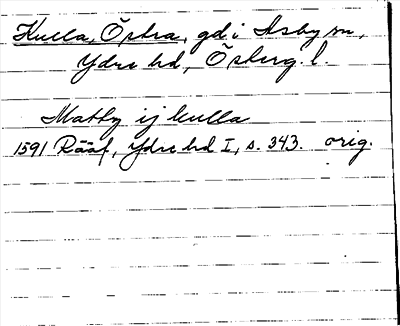 Kulla, Östra, gd i Asby sn,
Ydre hd, Österg. l.
Matts ij kulla
1591 Rääf, Ydre hd I, s. 343. orig.